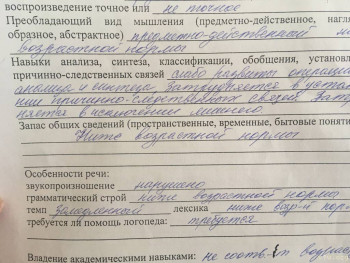 воспроизведение точное или не точное
Преобладающий вид мышления (предметно-действенное, нагля
образное, абстрактное) предметно-действенный н
возрастной нормы
Навыки анализа, синтеза, классификации, обобщения, установл
причинно-следственных связей слабо развиты операции
анализа и синтеза. Затрудняется в устан
нии причинно-следственных связей. Зат
няется в исключении лишнего
Запас общих сведений (пространственные, временные, бытовые поняти
Ниже возрастной нормы
Особенности речи:
звукопроизношение нарушено
грамматический строй ниже возрастной нормы
темп замедленный лексика ниже возр-й нор
требуется ли помощь логопеда: требуется
Владение академическими навыками: не соотв-т возрас